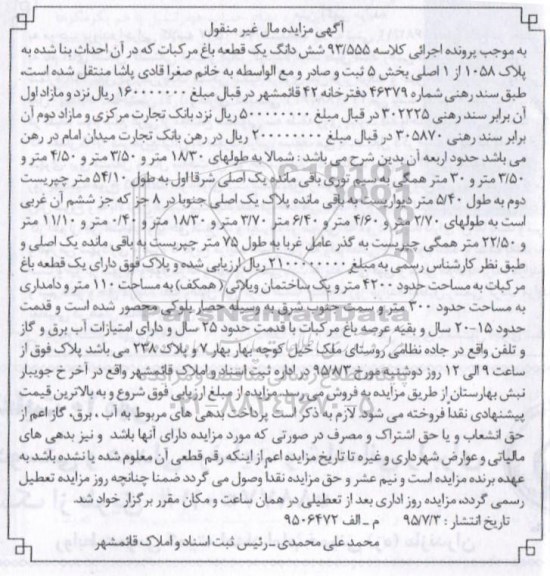 آگهی مزایده مال غیر منقول
به موجب پرونده اجرائی کلاسه ۹۳/۵۵۵ شش دانگ یک قطعه باغ مرکبات که در آن احداث بنا شده به
پلاک ۱۰۵۸ از ۱ اصلی بخش ۵ ثبت و صادر و مع الواسطه به خانم صغرا قادی پاشا منتقل شده است،
طبق سند رهنی شماره ۴۶۳۷۹ دفترخانه ۴۲ قائمشهر در قبال مبلغ ۱۶۰۰۰۰۰۰۰ ریال نزد و مازاد اول
آن برابر سند رهنی ۳۰۲۲۲۵ در قبال مبلغ ۵۰۰۰۰۰۰۰۰ ریال نزد بانک تجارت مرکزی و مازاد دوم آن
برابر سند رهنی ۳۰۵۸۷۰ در قبال مبلغ ۲۰۰۰۰۰۰۰۰ ریال در رهن بانک تجارت میدان امام در رهن
می باشد حدود اربعه آن بدین شرح می باشد : شمالا به طولهای ۱۸/۳۰ متر و ۳/۵۰ متر و ۴/۵۰ متر و
۳/۵۰ متر و ۳۰ متر همگی به سیم توری باقی مانده یک اصلی شرقا اول به طول ۵۴/۱۰ متر چپریست
دوم به طول ۵/۴۰ متر دیواریست به باقی مانده پلاک یک اصلی جنوبا در ۸ جز که جز ششم آن غربی
است به طولهای ۲/۷۰ متر و ۴/۶۰ متر و ۶/۴۰ متر ۳/۷۰ متر و ۱۸/۳۰ متر و ۰/۴۰ متر و ۱۱/۱۰ متر
و ۲۲/۵۰ متر همگی چپریست به گذر عامل غربا به طول ۷۵ متر چپریست به باقی مانده یک اصلی و
طبق نظر کارشناس رسمی به مبلغ ۲۱۰۰۰۰۰۰۰۰۰ ریال ارزیابی شده و پلاک فوق دارای یک قطعه باغ
مرکبات به مساحت حدود ۴۲۰۰ متر و یک ساختمان ویلائی (همکف) به مساحت ۱۱۰ متر و دامداری
به مساحت حدود ۳۰۰ متر و سمت جنوب شرق به وسیله حصار بلوکی محصور شده است و قدمت
حدود ۱۵-۲۰ سال و بقیه عرصه باغ مرکبات با قدمت حدود ۲۵ سال و دارای امتیازات آب برق و گاز
و تلفن واقع در جاده نظامی روستای ملک خیل کوچه بهار بهار ۷ و پلاک ۲۳۸ می باشد پلاک فوق از
ساعت ۹ الی ۱۲ روز دوشنبه مورخ ۹۵/۸/۳ در اداره ثبت اسناد و املاک قائمشهر واقع در آخر خ جویبار
نبش بهارستان از طریق مزایده به فروش می رسد. مزایده از مبلغ ارزیابی فوق شروع و به بالاترین قیمت
پیشنهادی نقدا فروخته می شود. لازم به ذکر است پرداخت بدهی های مربوط به آب، برق، گاز اعم از
حق انشعاب و یا حق اشتراک و مصرف در صورتی که مورد مزایده دارای آنها باشد و نیز بدهی های
مالیاتی و عوارض شهرداری و غیره تا تاریخ مزایده اعم از اینکه رقم قطعی آن معلوم شده یا نشده باشد به
عهده برنده مزایده است و نیم عشر و حق مزایده نقدا وصول می گردد ضمنا چنانچه روز مزایده تعطیل
رسمی گردد، مزایده روز اداری بعد از تعطیلی در همان ساعت و مکان مقرر برگزار خواهد شد.
تاریخ انتشار : ۹۵/۷/۳ م - الف ۹۵۰۶۴۷۲
محمد علی محمدی - رئیس ثبت اسناد و املاک قائمشهر
ParsNamadData